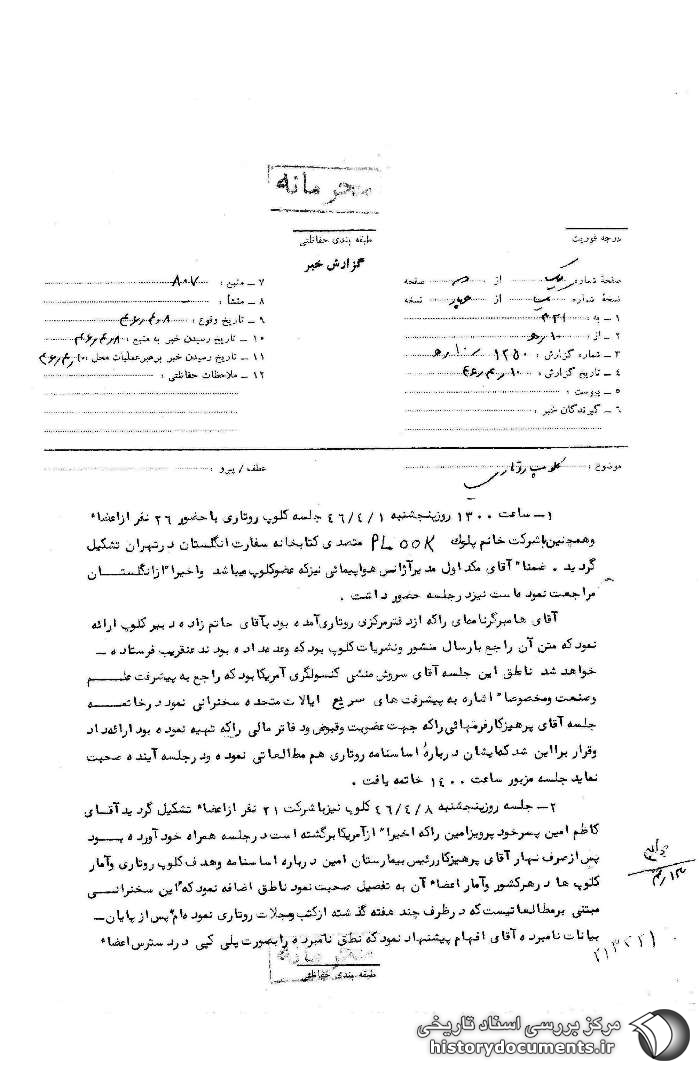 محرمانه
طبقه بندی حفاظتی
گزارش خبر
درجه فوریت
صفحة شماره یک از دو صفحه
نسخة شماره از چهار نسخه
۱ – به : ۳۳۱
۲ – از : ۱۰ ه
۳ – شماره گزارش : ۱۲۵۰ / ۱۰ ه
۴ – تاریخ گزارش : ۱۰ر۴ر۴۶
۵ – پیوست :
۶ – گیرندگان خبر :
۷ – منبع : ۸۰۷
۸ – منشأ :
۹ – تاریخ وقوع : ۸ر۴ر۴۶
۱۰ – تاریخ رسیدن خبر به منبع : ۸ر۴ر۴۶
۱۱ – تاریخ رسیدن خبر برهبرعملیات محل : ۱۰ر۴ر۴۶
۱۲ – ملاحظات حفاظتی :
موضوع : کلوپ روتاری
عطف / پیرو :
۱– ساعت ۱۳۰۰ روزپنجشنبه ۴۶/۴/۱ جلسه کلوپ روتاری باحضور ۲۶ نفر ازاعضاء
وهمچنین باشرکت خانم پلوک PLOOK متصدی کتابخانه سفارت انگلستان درتهران تشکیل
گردید . ضمناً آقای مک اول مدیرآژانس هواپیمائی نیزکه عضوکلوپ میباشد واخیراً ازانگلستان
مراجعت نموده است نیزدرجلسه حضور داشت .
آقای هامبرگرنامه‌ای راکه ازدفترمرکزی روتاری آمده بود بآقای حاتم زاده دبیر کلوپ ارائه
نمود که متن آن راجع بارسال منشور ونشریات کلوپ بود که وعده داده بودند عنقریب فرستاده –
خواهد شد ناطق این جلسه آقای سروش منشی کنسولگری آمریکا بود که راجع به پیشرفت علم
وصنعت ومخصوصاً اشاره به پیشرفت های سریع ایالات متحده سخنرانی نمود درخاتمه
جلسه آقای پرهیزکارفرمهائی راکه جهت عضویت وقبوض ودفاتر مالی راکه تهیه نموده بود ارائه داد
وقرار براین شد که ایشان دربارهٔ اساسنامه روتاری هم مطالعاتی نموده ودرجلسه آینده صحبت
نماید جلسه مزبور ساعت ۱۴۰۰ خاتمه یافت .
۲– جلسه روزپنجشنبه ۴۶/۴/۸ کلوپ نیزباشرکت ۲۱ نفر ازاعضاء تشکیل گردید آقای
کاظم امین پسرخود پرویزامین راکه اخیراً ازآمریکا برگشته است درجلسه همراه خود آورده بود
پس ازصرف نهار آقای پرهیزکاررئیس بیمارستان امین درباره اساسنامه وهدف کلوپ روتاری وآمار
کلوپ ها درهرکشور وآمار اعضاء آن به تفصیل صحبت نمود ناطق اضافه نمود که"این سخنرانی
مبتنی برمطالعاتیست که درظرف چند هفته گذشته ازکتب ومجلات روتاری نموده ام"پس از پایان–
بیانات نامبرده آقای افهام پیشنهاد نمود که نطق نامبرده رابصورت پلی کپی دردسترس اعضاء
۲۱۳۳۳۱
محرمانه
طبقه بندی حفاظتی
مرکز بررسی اسناد تاریخی
historydocuments.ir